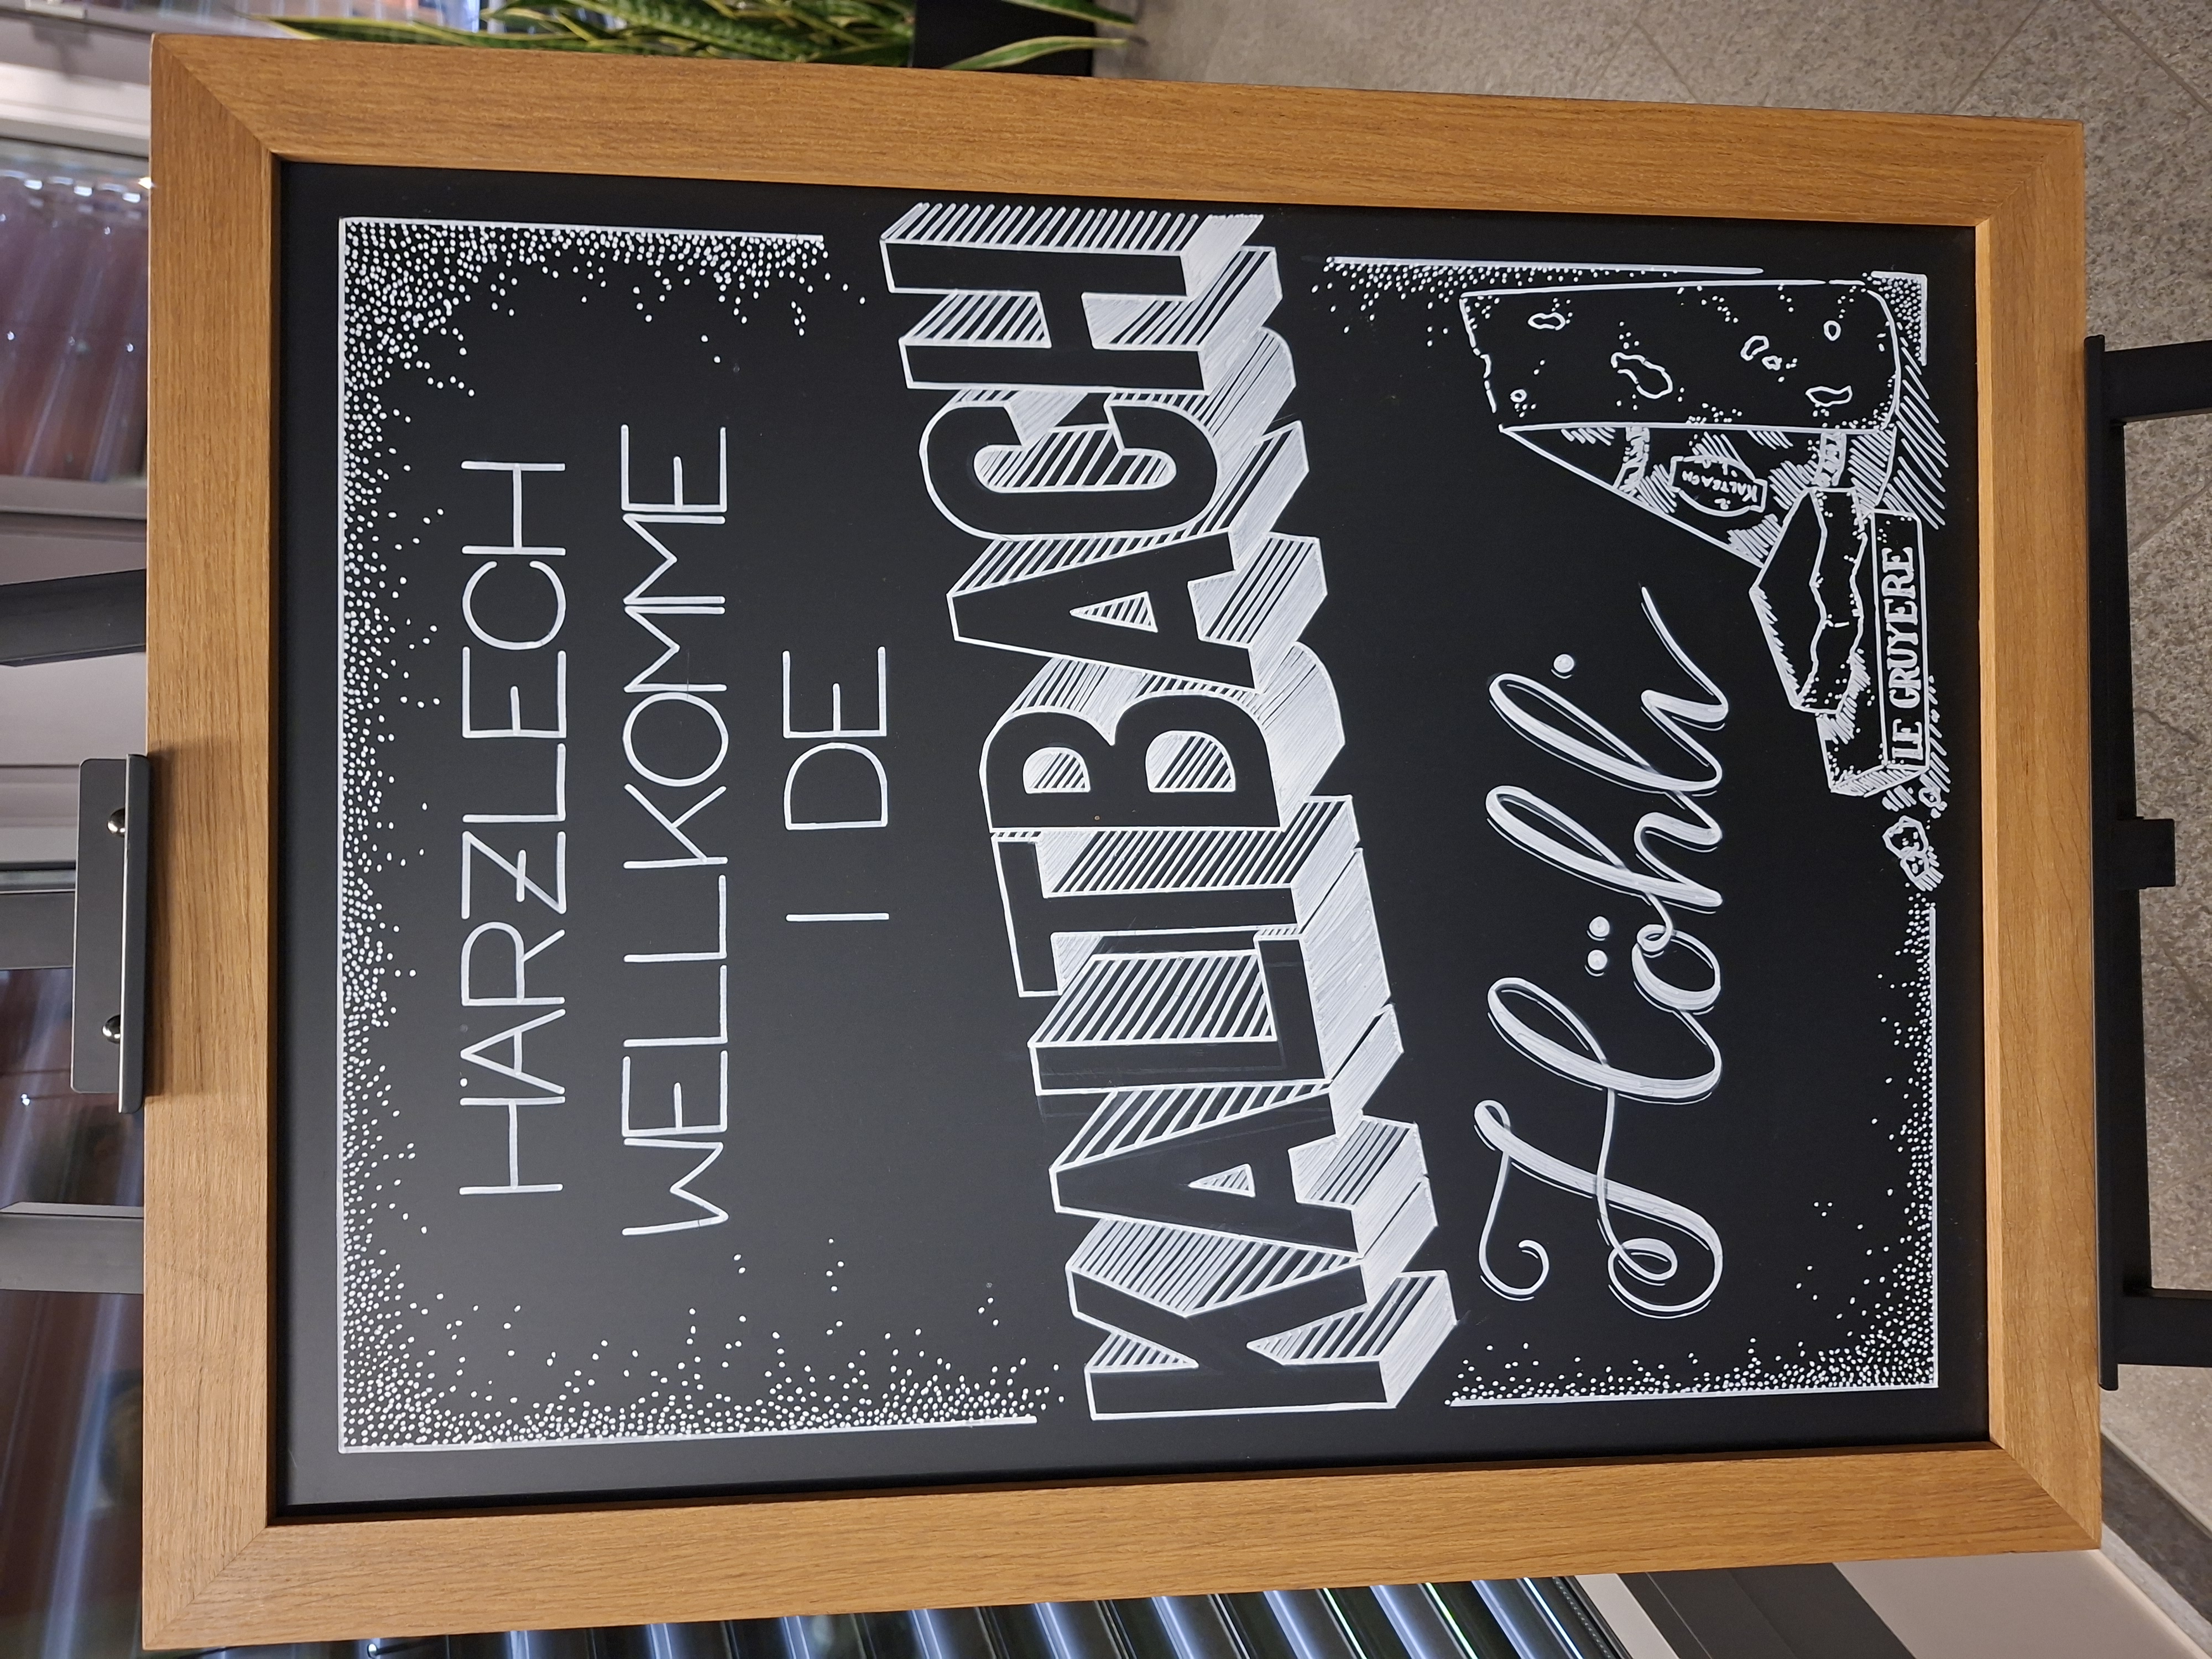 HÄRZLECH
WELLKOMME
I DE
KALTBACH
Höhli
KALTBACH
LE GRUYERE